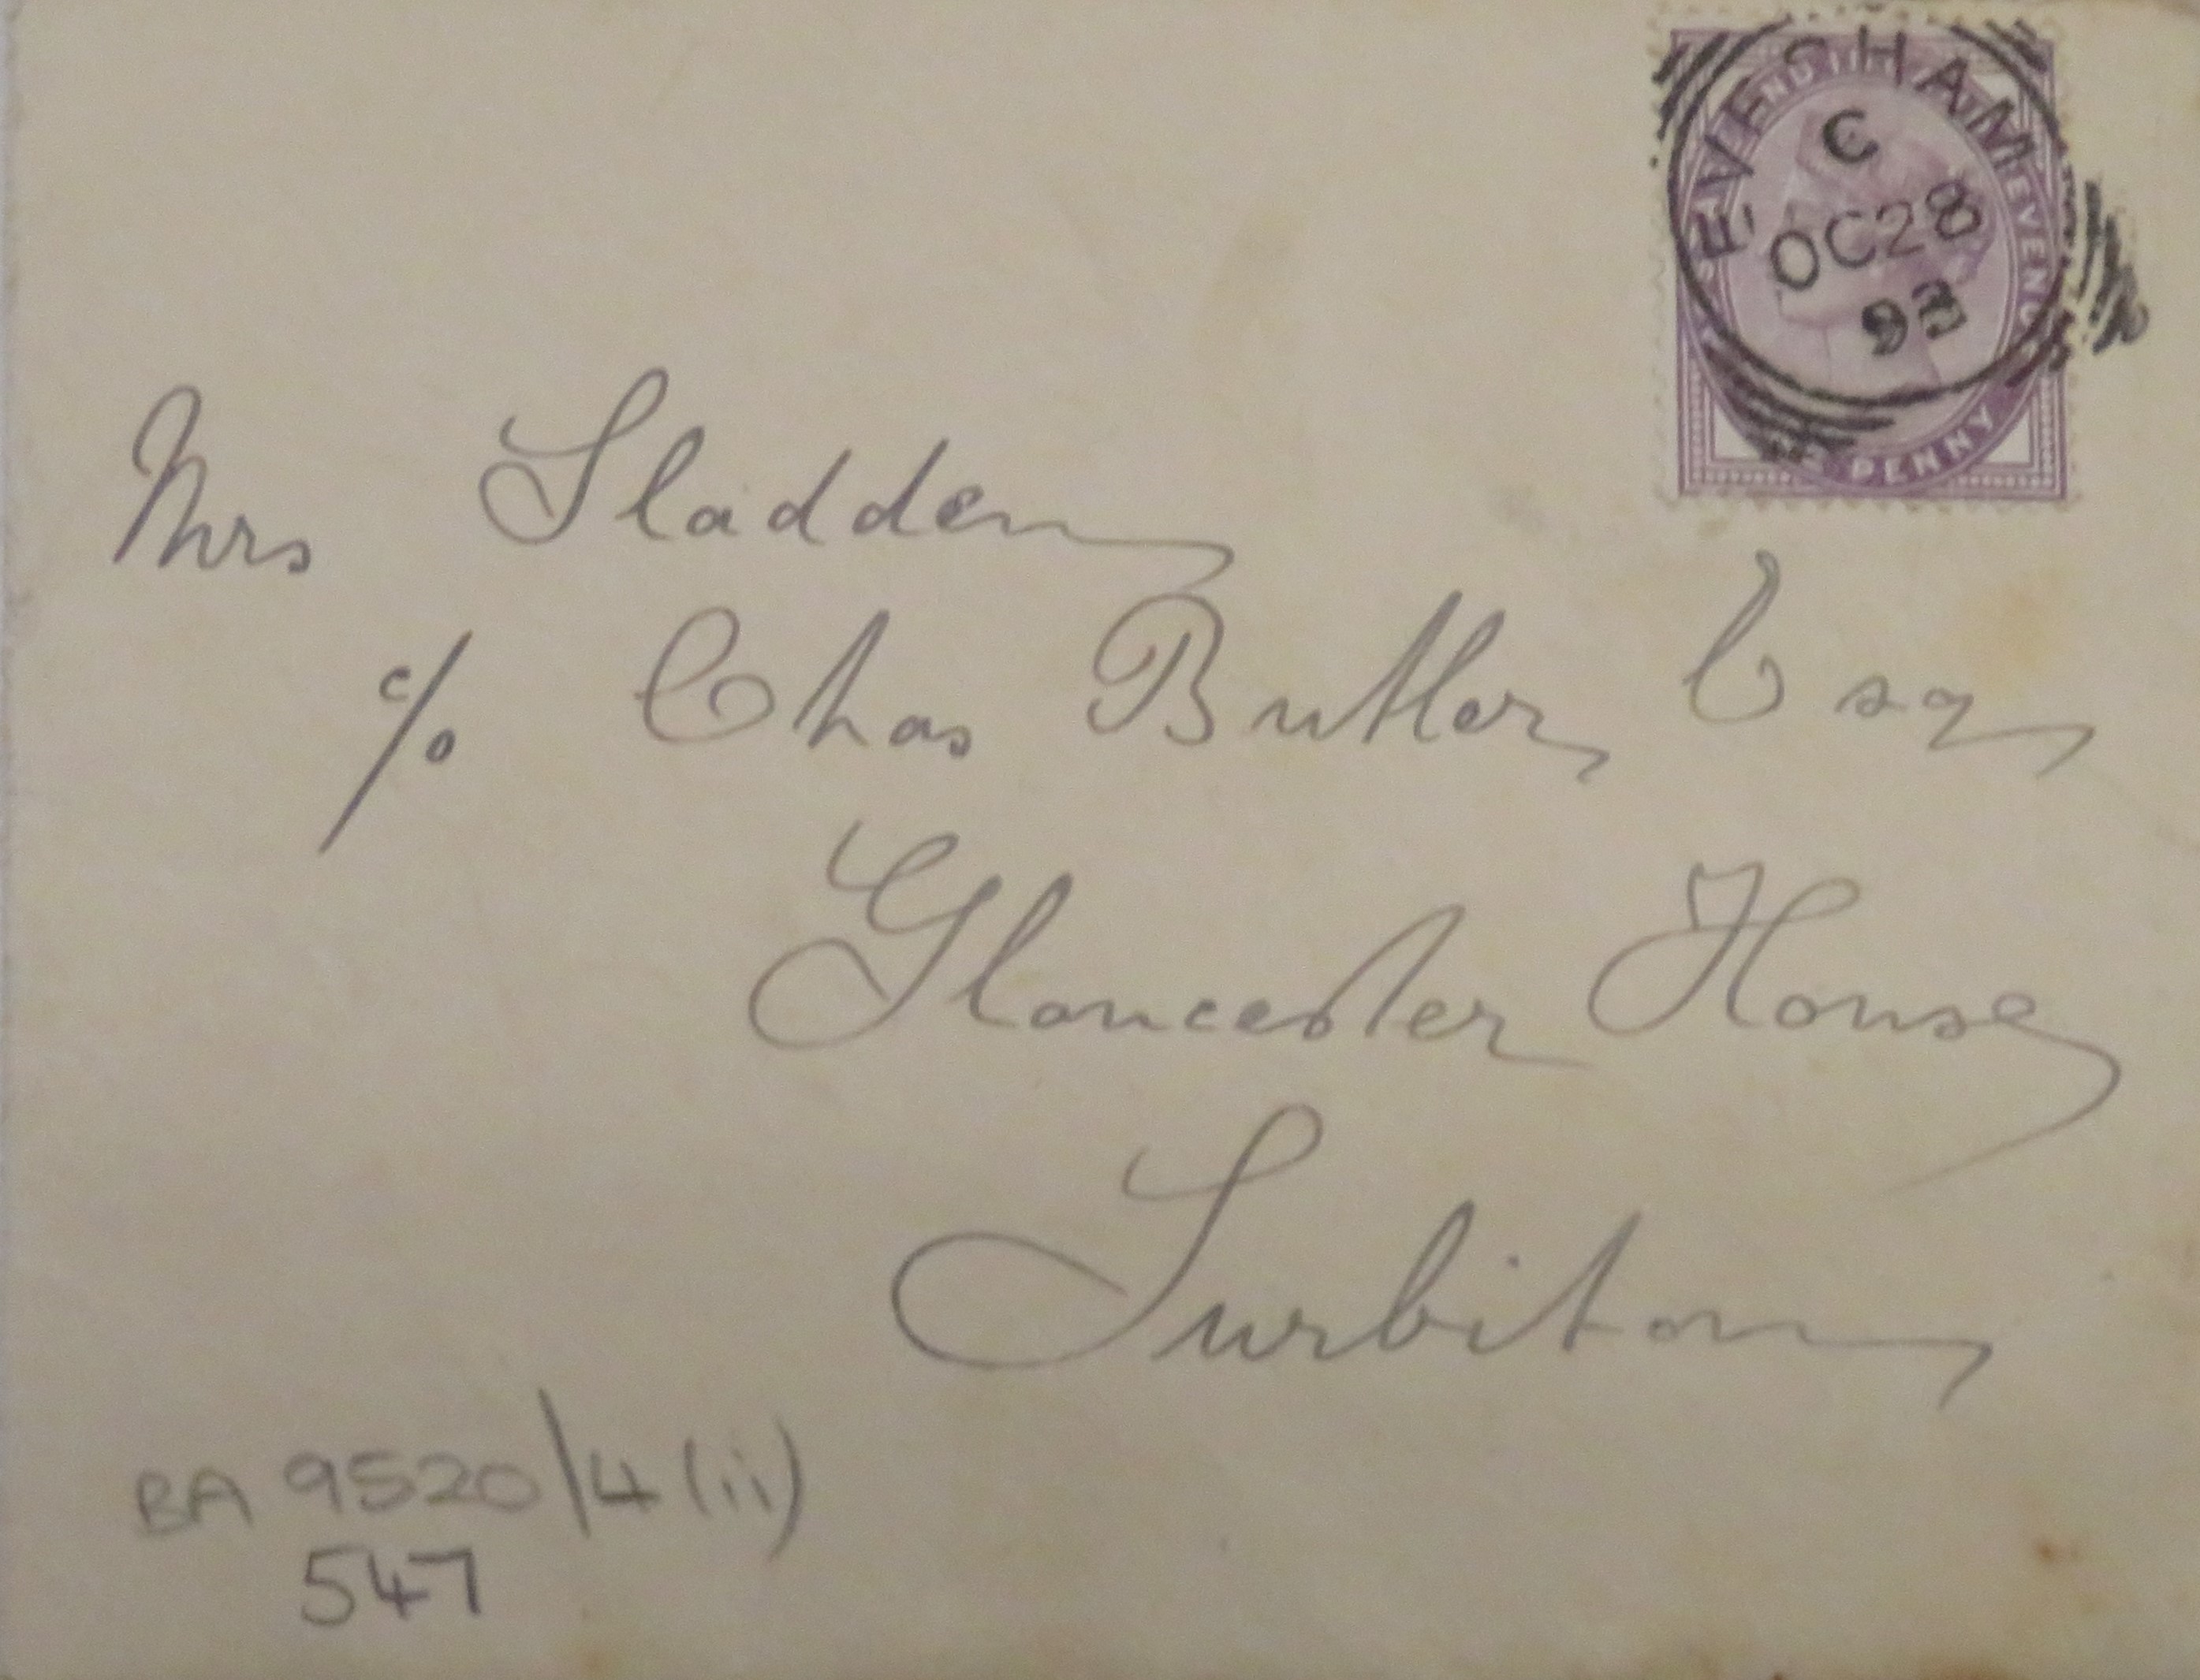 EVESHAM
C
OC 28
93
PENNY
Mrs Sladden
c/o Chas Butler Esq
Gloucester House
Surbiton
BA 9520/4 (ii)
547